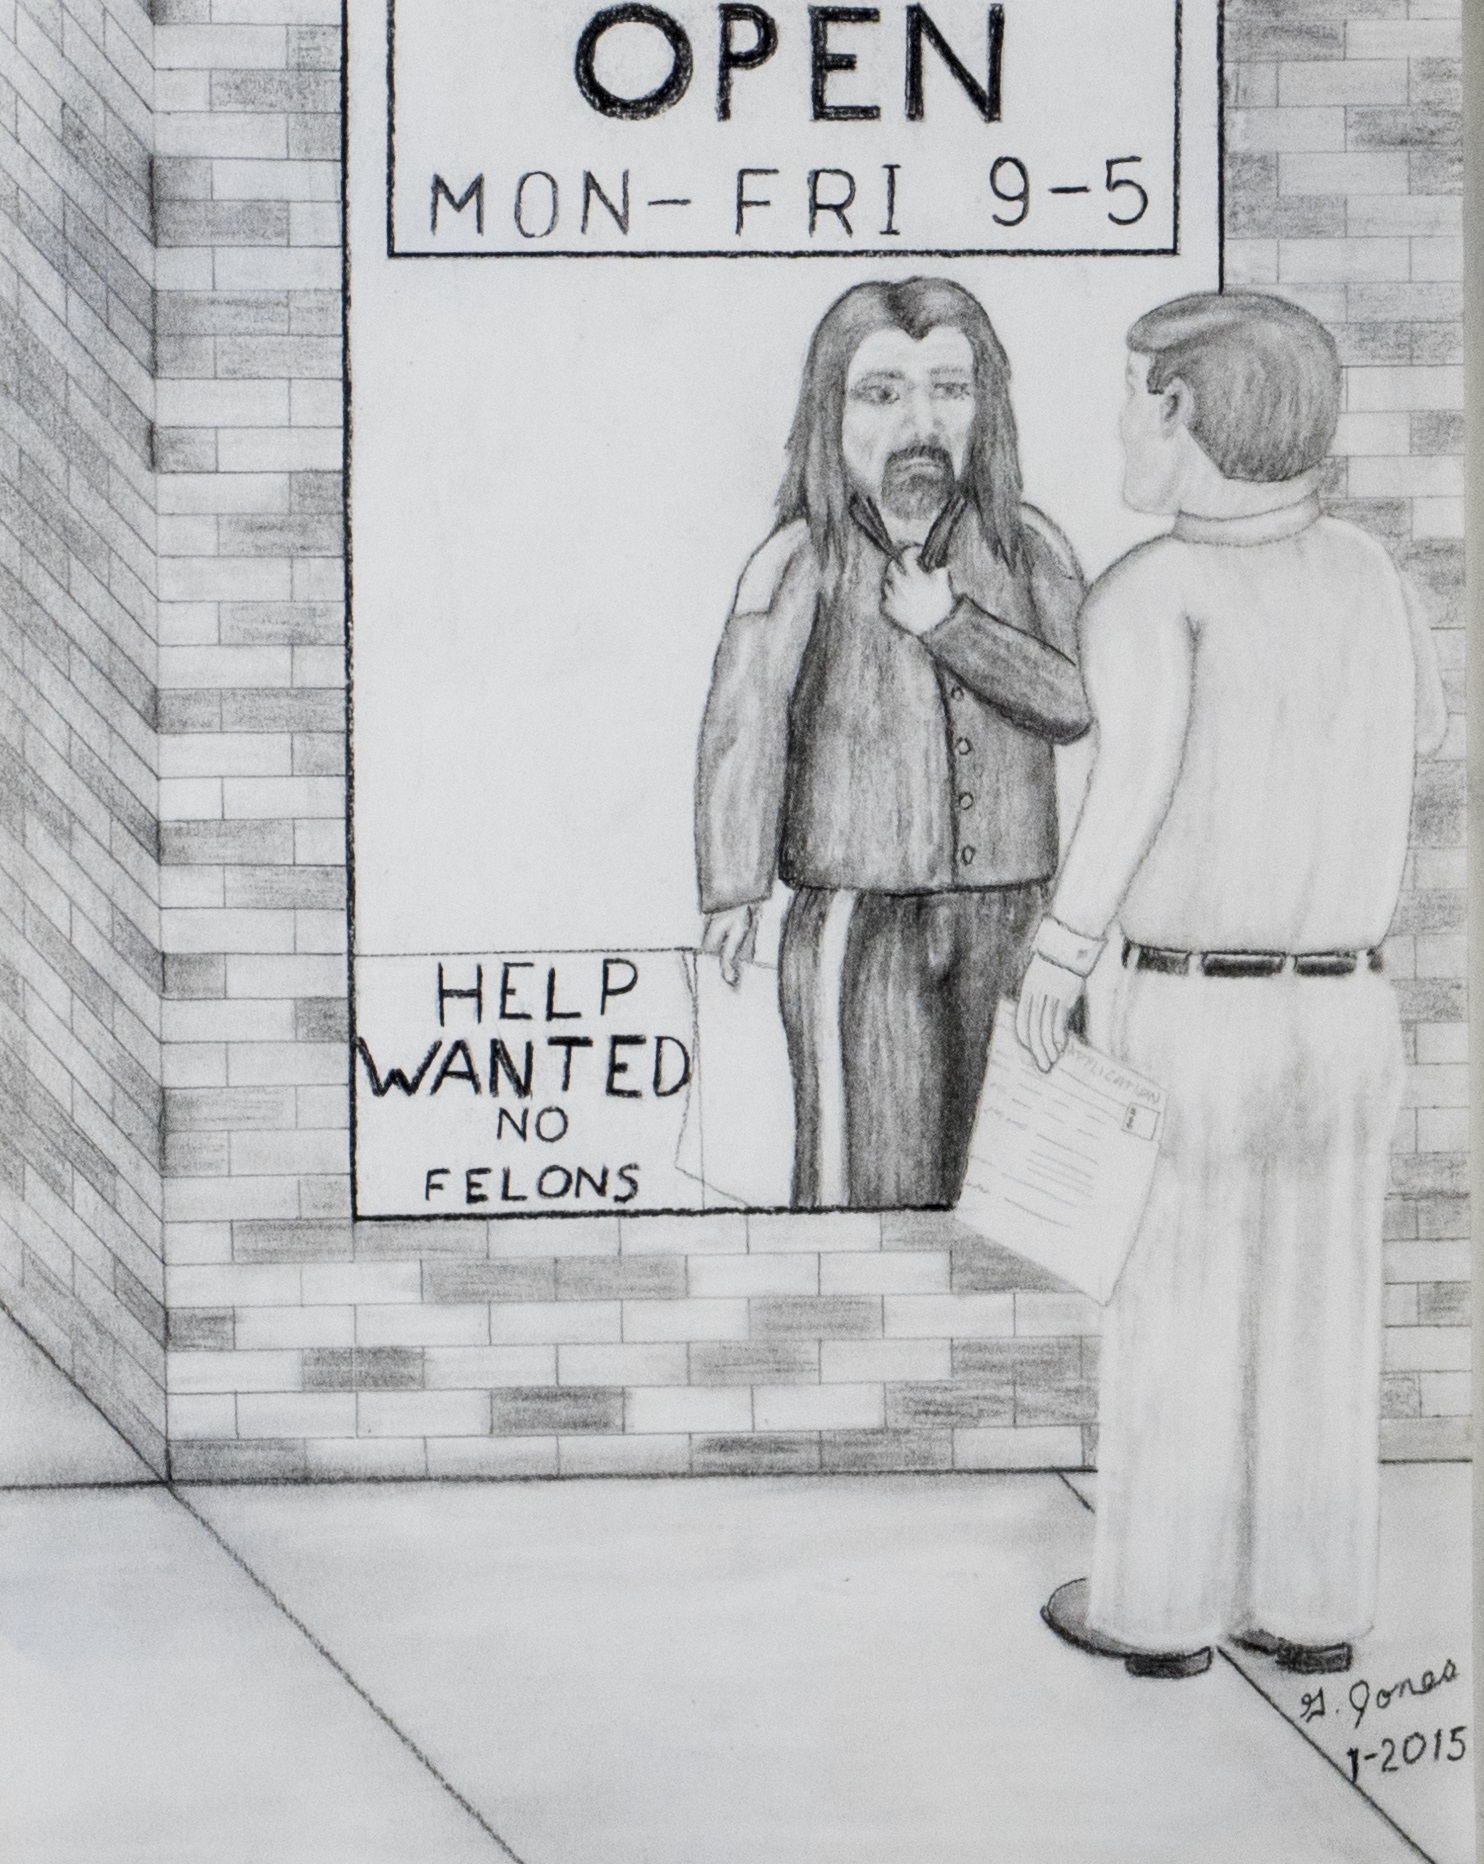 OPEN
MON-FRI 9-5
HELP
WANTED
NO
FELONS
APPLICATION
G. Jones
1-2015